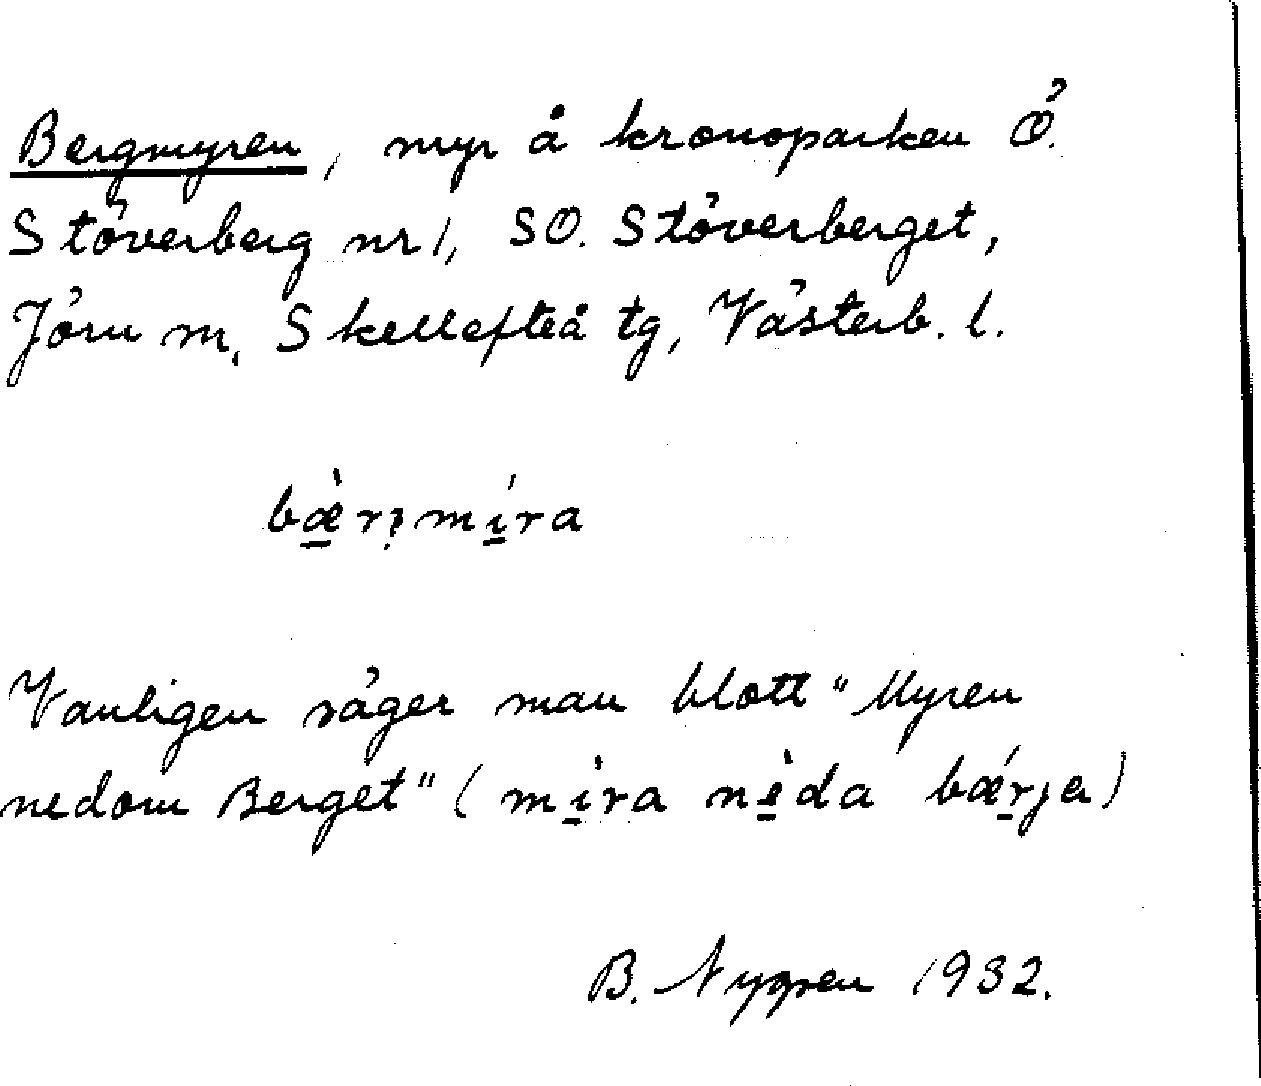 Bergmyren, myr å kronoparken Ö.
Stöverberg nr 1, SO. Stöverberget,
Jörn sn, Skellefteå tg, Västerb. l.
bæ̀rjmíra
Vanligen säger man blott "Myren
nedom Berget" (míra nèda bǽrja)
B. Nygren 1932.